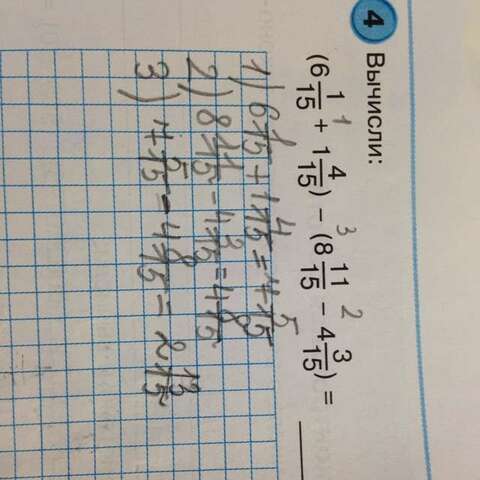 4 Вычисли:
(6 1/15 + 1 4/15) − (8 11/15 − 4 3/15) =
1 3 2
1) 6 1/15 + 1 4/15 = 7 5/15
2) 8 11/15 - 4 3/15 = 4 8/15
3) 7 5/15 - 4 8/15 = 2 12/15